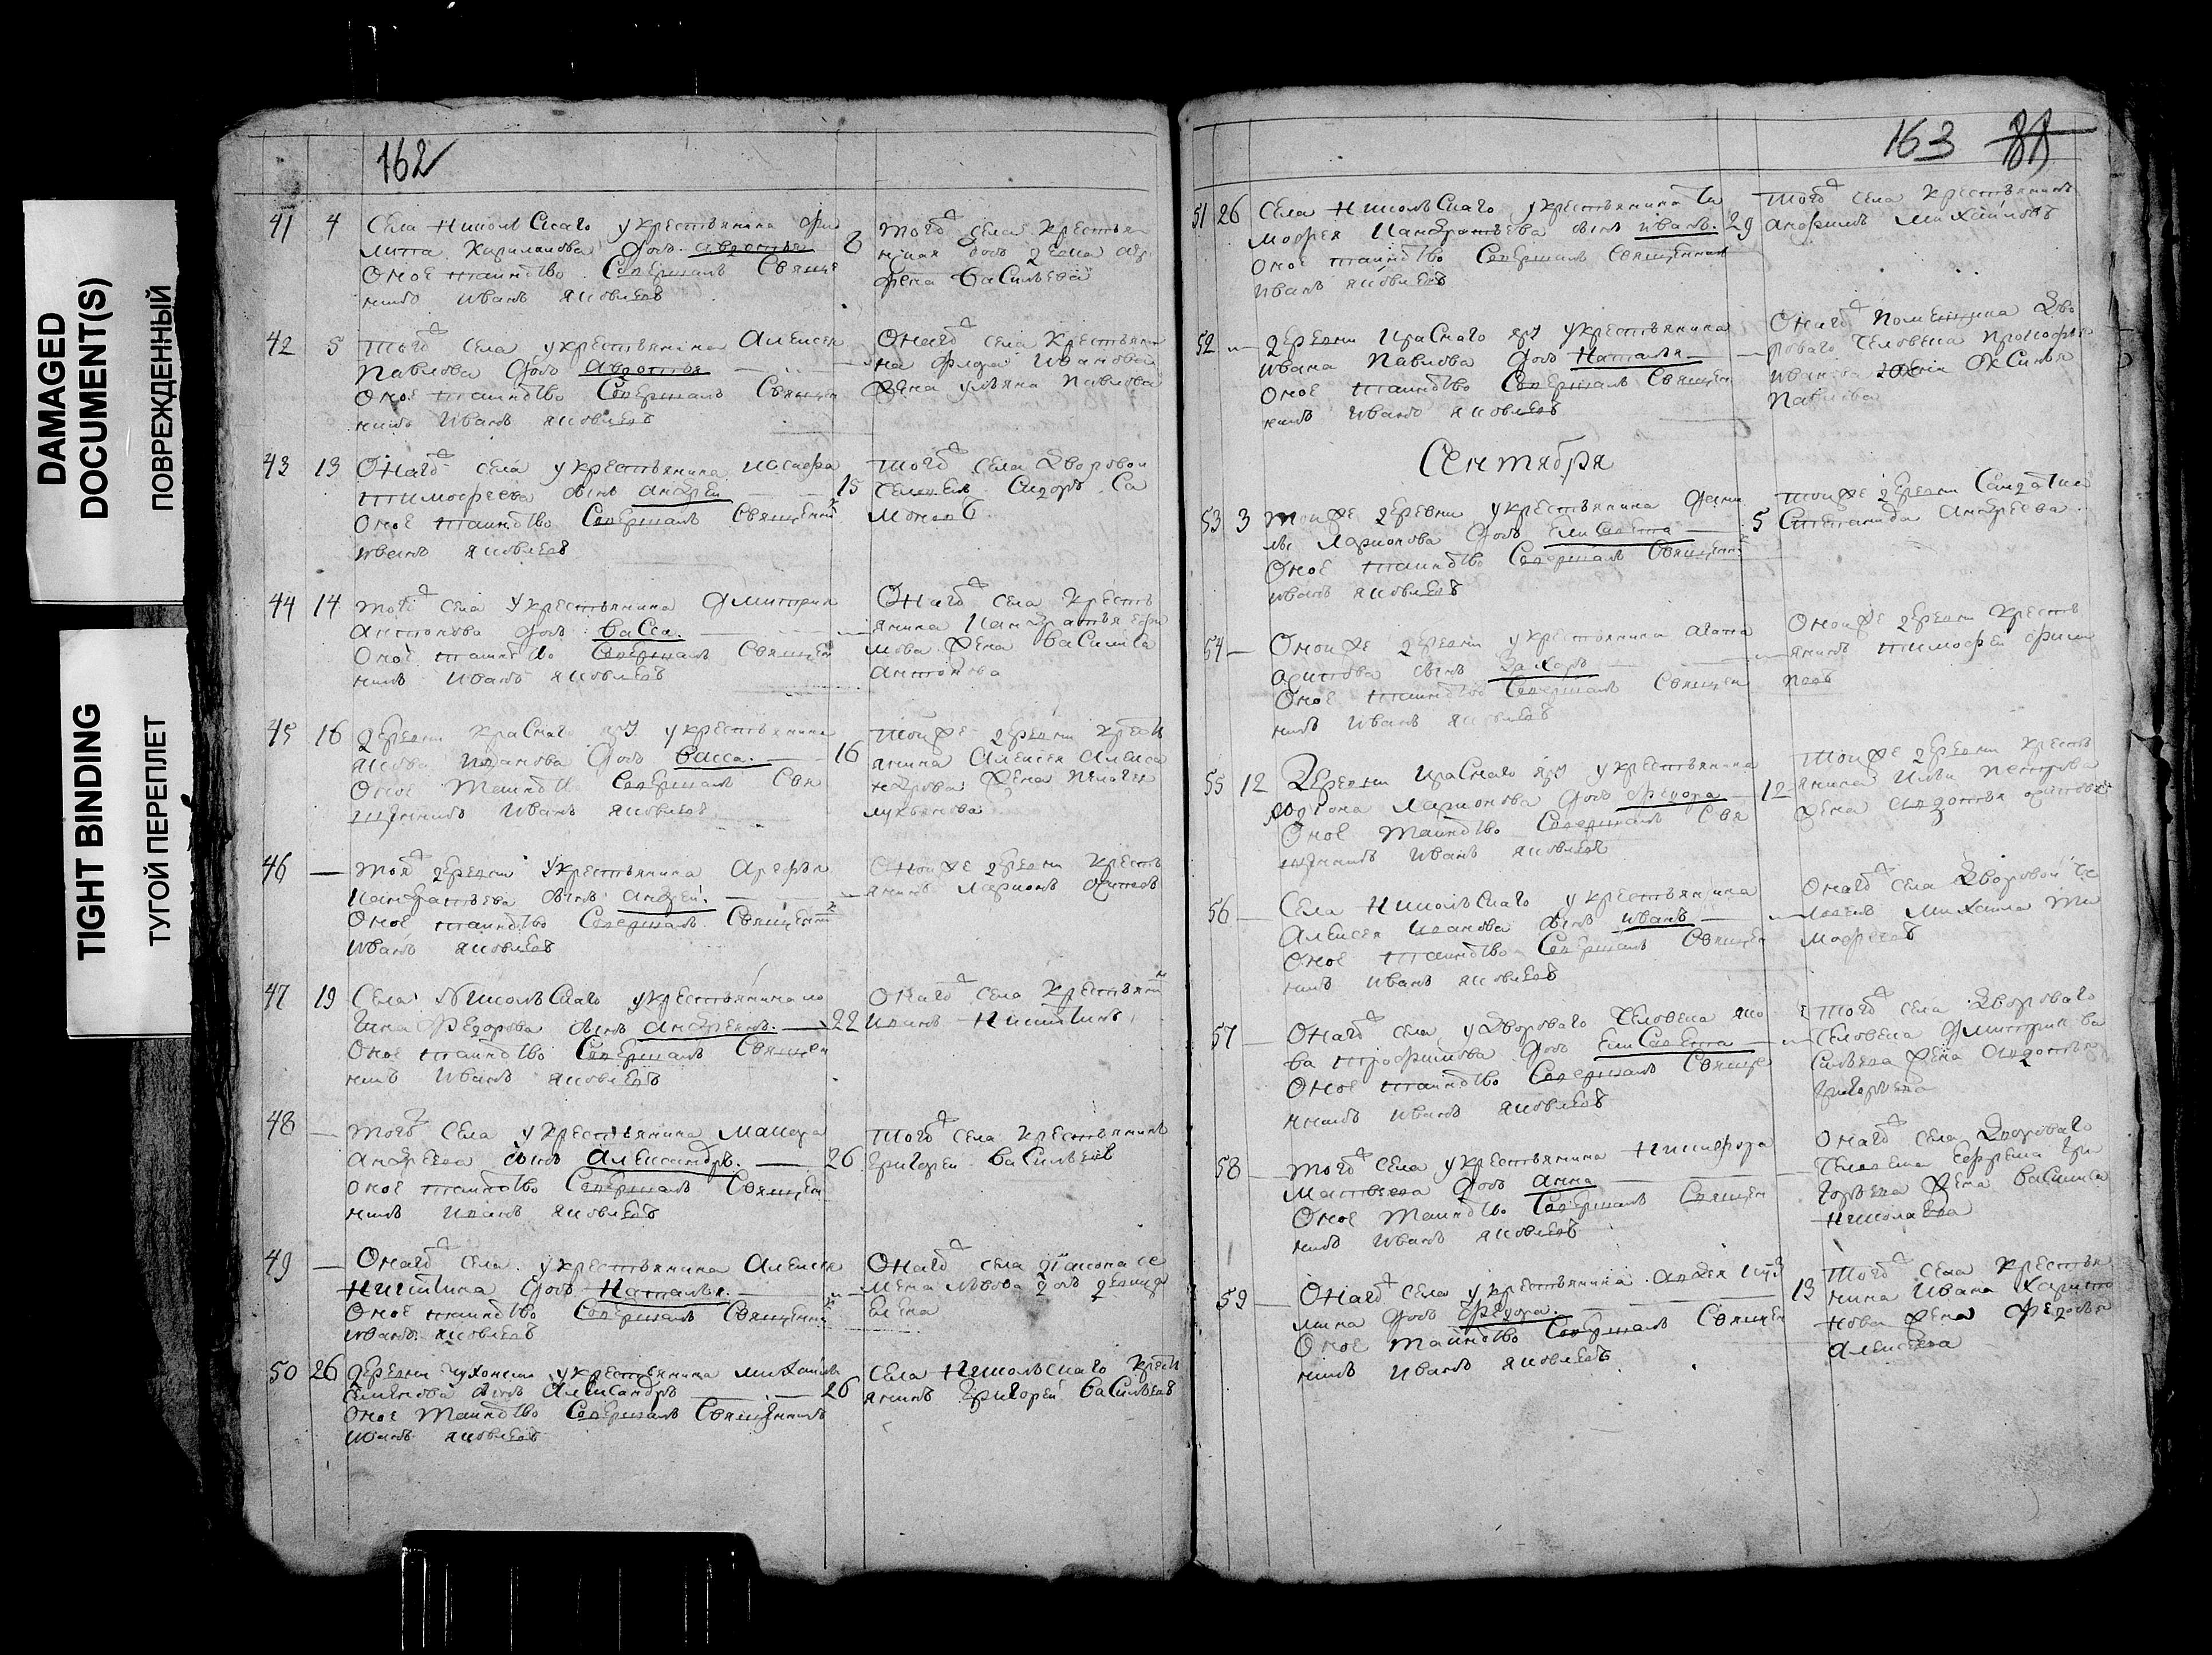 DAMAGED
DOCUMENT(S)
ПОВРЕЖДЕННЫЙ
TIGHT BINDING
ТУГОЙ ПЕРЕПЛЕТ
162
41 4 Села Никольскаго укрестьянина
дочь Авдотья 6
Оное таинство Совершалъ Священ
никъ Иванъ Яковлевъ
того села Крестьян
Васильева
42 5 того села укрестьянина Алексея
Павлова дочь Авдотья
Оное таинство Совершалъ Священ
никъ Иванъ Яковлевъ
Онаго села Крестьяни
на Иванова
жена ульяна Павлова
43 13 Онаго села укрестьянина
тимофеева сынъ андрей 15
Оное таинство Совершалъ Священ
иванъ Яковлевъ
того села дворовой
человекъ Сидоръ
44 14 того села укрестьянина дмитрия
антонова дочь васса
Оное таинство Совершалъ Священ
никъ Иванъ Яковлевъ
Онаго села Кресть
янина
жена василиса
антонова
45 16 деревни красного яру укрестьянина
якова Иванова дочь васса 16
Оное таинство Совершалъ Свя
щенникъ Иванъ Яковлевъ
тойже деревни Кресть
янина Алексея Алекса
ндрова жена пелагея
лукьянова
46 — деревни укрестьянина Арефья
сынъ андрей
Оное таинство Совершалъ Священ
Иванъ Яковлевъ
Онойже деревни Кресть
янинъ Ларионъ
47 19 Села Никольскаго укрестьянина
Федорова сынъ Андреянъ 22
Оное таинство Совершалъ Священ
никъ Иванъ Яковлевъ
Онаго села Крестьянин
Иванъ Никитинъ
48 — того Села укрестьянина макара
Андреева сынъ Александръ 26
Оное таинство Совершалъ Священ
никъ Иванъ Яковлевъ
того села Крестьянинъ
Григорей Васильевъ
49 — Онаго села укрестьянина Алексея
Никитина дочь Наталья
Оное таинство Совершалъ Священ
иванъ яковлевъ
Онаго села
дочь девица
Елена
50 26 деревни укрестьянина михаила
сынъ Александръ 26
Оное таинство Совершалъ Священникъ
Иванъ Яковлевъ
Села Никольскаго Кресть
янинъ Григорей Васильевъ
163
51 26 Села Никольскаго укрестьянина Ти
мофея сынъ иванъ 29
Оное таинство Совершалъ Священникъ
Иванъ Яковлевъ
того села крестьянинъ
Михайловъ
52 деревни Красного яру укрестьянина
ивана Павлова дочь Наталья
Оное таинство Совершалъ Священ
никъ Иванъ Яковлевъ
Онаго Помещика дво
роваго человека Прокофья
Иванова Оксинья
Павлова
Сентября
53 3 тойже деревни укрестьянина дани
лы Ларионова дочь Елисавета 5
Оное таинство Совершалъ Священ
иванъ Яковлевъ
тойже деревни Салдатка
Степанида Андреева
54 — Онойже деревни укрестьянина
сынъ Захаръ
Оное таинство Совершалъ Священ
никъ Иванъ Яковлевъ
Онойже деревни Кресть
янинъ тимофей
55 12 Деревни Красного яру укрестьянина
Родиона Ларионова дочь Федора 12
Оное таинство Совершалъ Свя
щенникъ Иванъ Яковлевъ
тойже деревни Кресть
янина Ильи Петрова
жена авдотья
56 — Села Никольскаго укрестьянина
Алексея Иванова сынъ иванъ
Оное таинство Совершалъ Священ
никъ Иванъ Яковлевъ
Онаго села Дворовой че
ловекъ Михаила Ти
мофеевъ
57 — Онаго села удвороваго Человека яко
ва трофимова дочь Елисавета
Оное таинство Совершалъ Священ
никъ Иванъ Яковлевъ
того села Двороваго
человека дмитрия ва
сильева жена Авдотья
Григорьева
58 — того села укрестьянина Никифора
Матвеева дочь анна
Оное таинство Совершалъ Священ
никъ Иванъ Яковлевъ
Онаго села Двороваго
Человека Ефрема Гри
горьева жена василиса
Николаева
59 — Онаго села укрестьянина
мина дочь Федора 13
Оное таинство Совершалъ Священ
никъ Иванъ Яковлевъ
того села крестья
нина Ивана Харито
нова жена Федосья
Алексеева